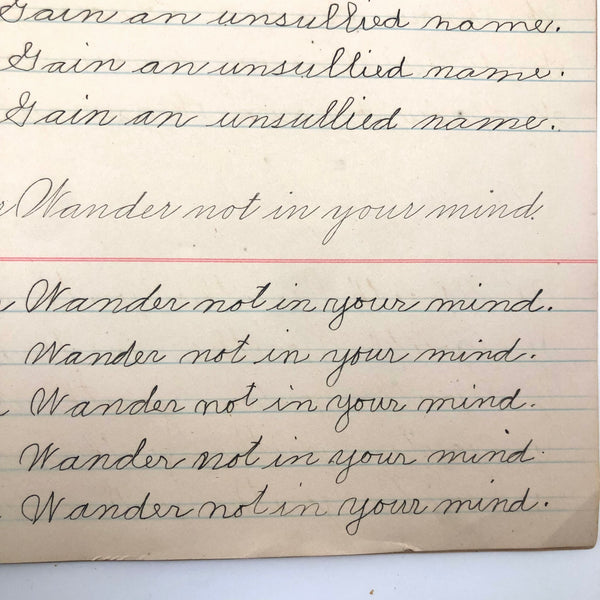 Gain an unsullied name.
Gain an unsullied name.
Gain an unsullied name.
Wander not in your mind.
Wander not in your mind.
Wander not in your mind.
Wander not in your mind.
Wander not in your mind.
Wander not in your mind.